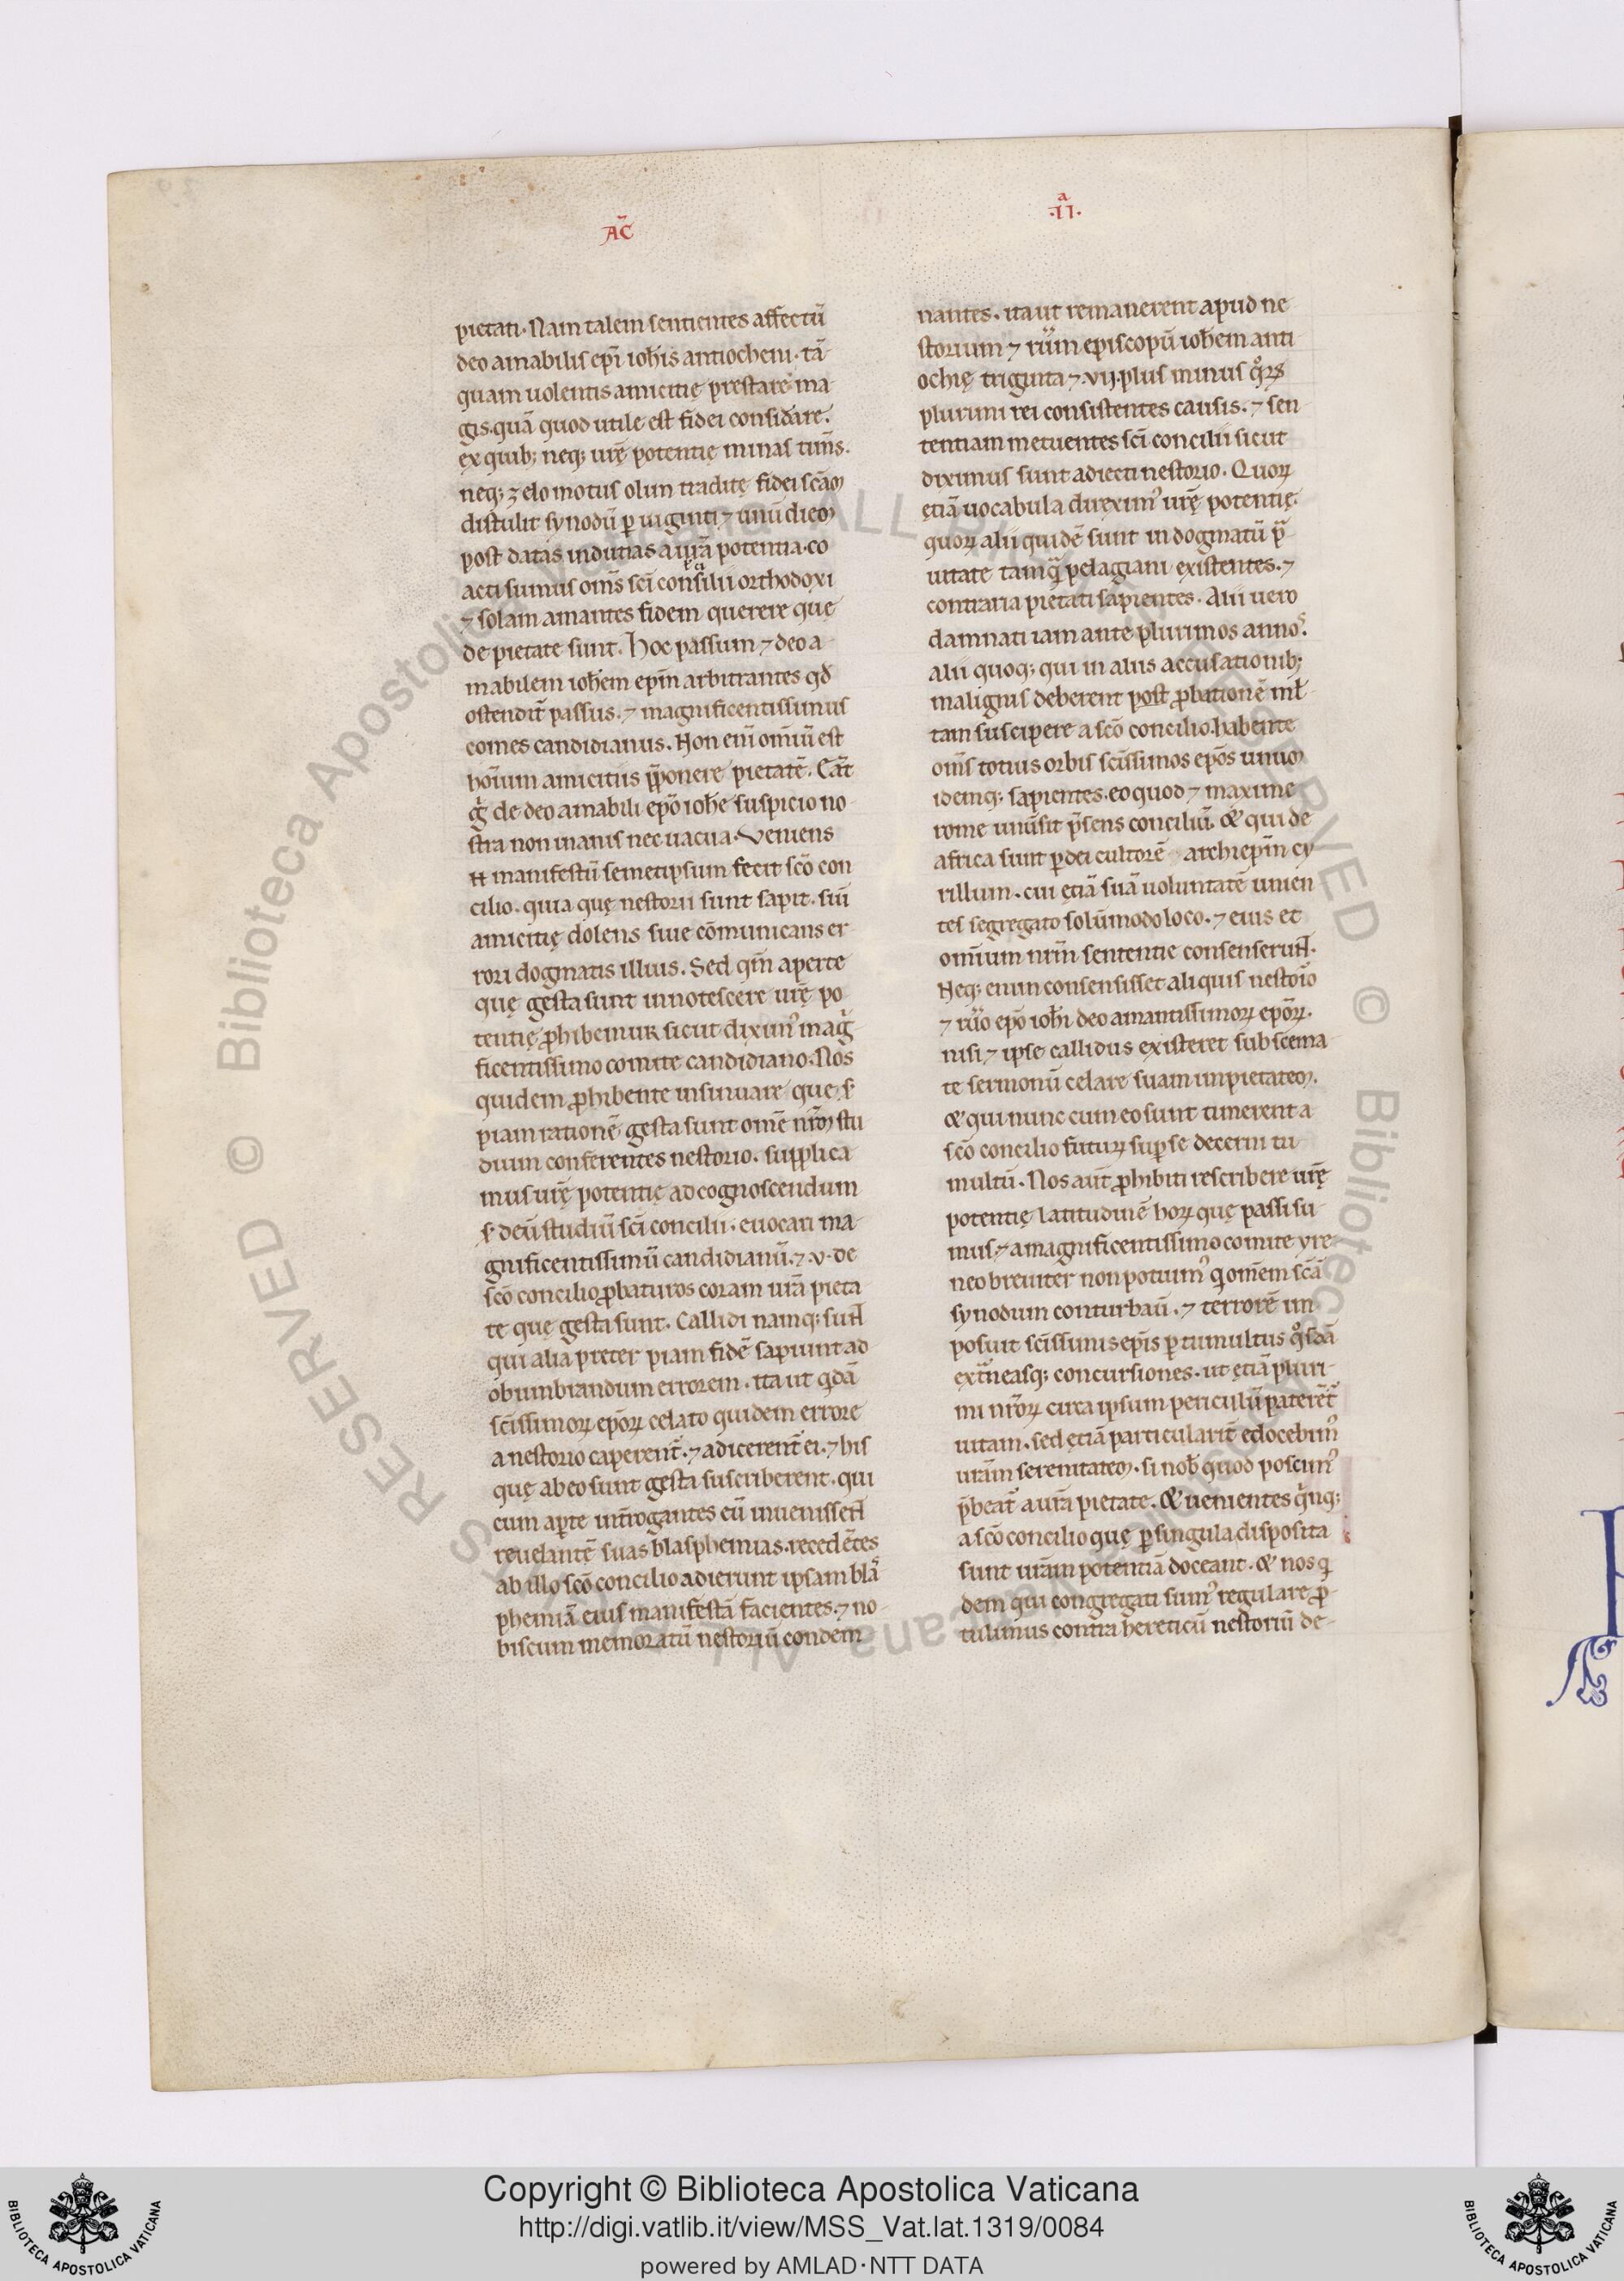 AC̄
.II.ª
pietati. Nam talem sentientes affectū
deo amabilis ep̄i ioh̄is antiocheni. tā
quam uolentis amicitię prestare ma
gis. quā quod utile est fidei considare.
ex quib; neq; ur̄ę potentię minas tim̄s.
neq; zelo motus olim traditę fidei sc̄am
distulit synodū p uiginti ⁊ unū diem
post datas inducias a ur̄a potentia. co
acti sumus om̄s sc̄i consilii orthodoxi
⁊ solam amantes fidem querere que
de pietate sunt. Hoc passum ⁊ deo a
mabilem ioh̄em ep̄m arbitrantes qd̄
ostendit passus. ⁊ magnificentissimus
comes candidianus. Non eni om̄iū est
hoīum amicitiis p̄ponere pietatē. Cāt
g̊ de deo amabili ep̄o ioh̄e suspicio no
stra non inanis nec uacua. Veniens
N manifestū semetipsum fecit sc̄o con
cilio. quia quę nestorii sunt sapit. siū
amicitię dolens siue cōmunicans er
rori dogmatis illius. Sed qm̄ aperte
quę gesta sunt innotescere ur̄ę po
tentię phibemur sicut diximꝰ mag
ficentissimo comite candidiano. Nos
quidem phibente insinuare que s̄
piam rationē gesta sunt omē nr̄m stu
dium conferentes nestorio. supplica
mus ur̄ę potentię ad cognoscendum
s̄ deū studiū sc̄i concilii. euocari ma
gnificentissimū candidianū. ⁊ .v. de
sc̄o concilio pbaturos coram ur̄a pieta
te quę gesta sunt. Callidi namq; sunt
qui alia preter piam fidē sapiunt ad
obumbrandum errorem. ita ut qdā
sc̄issimoꝝ ep̄oꝝ celato quidem errore
a nestorio caperent̄. ⁊ adicerent̄ ei. ⁊ his
quę ab eo sunt gesta suscriberent. qui
cum apte int̄rogantes eū inuenissent
reuelantē suas blasphemias. recedētes
ab illo sc̄o concilio adierunt ipsam blas
phemiā eius manifestā facientes. ⁊ no
biscum memoratū nestoriū condem
nantes. ita ut remanerent apud ne
storium ⁊ rūm episcopū ioh̄em anti
ochię triginta ⁊ .vij. plus minus qͦꝝ
plurimi rei consistentes causis. ⁊ sen
tentiam metuentes sc̄i concilii sicut
diximus sunt adiecti nestorio. Quoꝝ
ętiā uocabula direximꝰ ur̄ę potentię.
quoꝝ alii quidē sunt in dogmatū p̄
uitate tamq̄ pelagiani existentes. ⁊
contraria pietati sapientes. Alii uero
damnati iam ante plurimos annos.
alii quoq; qui in aliis accusationib;
malignis deberent post pbationē ml̄
tam suscipere a sc̄o concilio. habente
om̄s totius orbis sc̄issimos ep̄os unum
idemq; sapientes. eo quod ⁊ maxime
rome unū sit p̄sens conciliū. & qui de
africa sunt p dei cultorē archiep̄m cy
rillum. cui ętiā suā uoluntatē unien
tes segregato solūmodo loco. ⁊ eius et
om̄ium nr̄m sententie consenserunt.
Neq; enim consensisset aliquis nestorio
⁊ rūo ep̄o ioh̄i deo amantissimoꝝ ep̄oꝝ.
nisi ⁊ ipse callidus existeret sub scema
te sermonū celare suam impietatem.
& qui nunc cum eo sunt timerent a
sc̄o concilio futuꝝ sup se decerni tu
multū. Nos aūt phibiti rescribere ur̄ę
potentię latitudinē hoꝝ quę passi su
mus. ⁊ a magnificentissimo comite yre
neo breuiter non potuimꝰ q omem sc̄ā
synodum conturbaū. ⁊ terrorē im
posuit sc̄issimis ep̄is p tumultus qͦsdā
ext̄neasq; concursiones. ut ętiā pluri
mi nr̄oꝝ circa ipsum periculū paterēt̄
uitam. sed ętiā particularit̄ edocebimꝰ
ur̄am serenitatem. si nob̄ quod poscimꝰ
p̄beat̄ a ur̄a pietate. & uenientes qinq;
a sc̄o concilio quę p singula disposita
sunt ur̄am potentiā doceant. & nos q
dem qui congregati sumꝰ regulare p
tulimus contra hereticū nestoriū de
Copyright © Biblioteca Apostolica Vaticana
http://digi.vatlib.it/view/MSS_Vat.lat.1319/0084
powered by AMLAD·NTT DATA
BIBLIOTECA APOSTOLICA VATICANA
BIBLIOTECA APOSTOLICA VATICANA